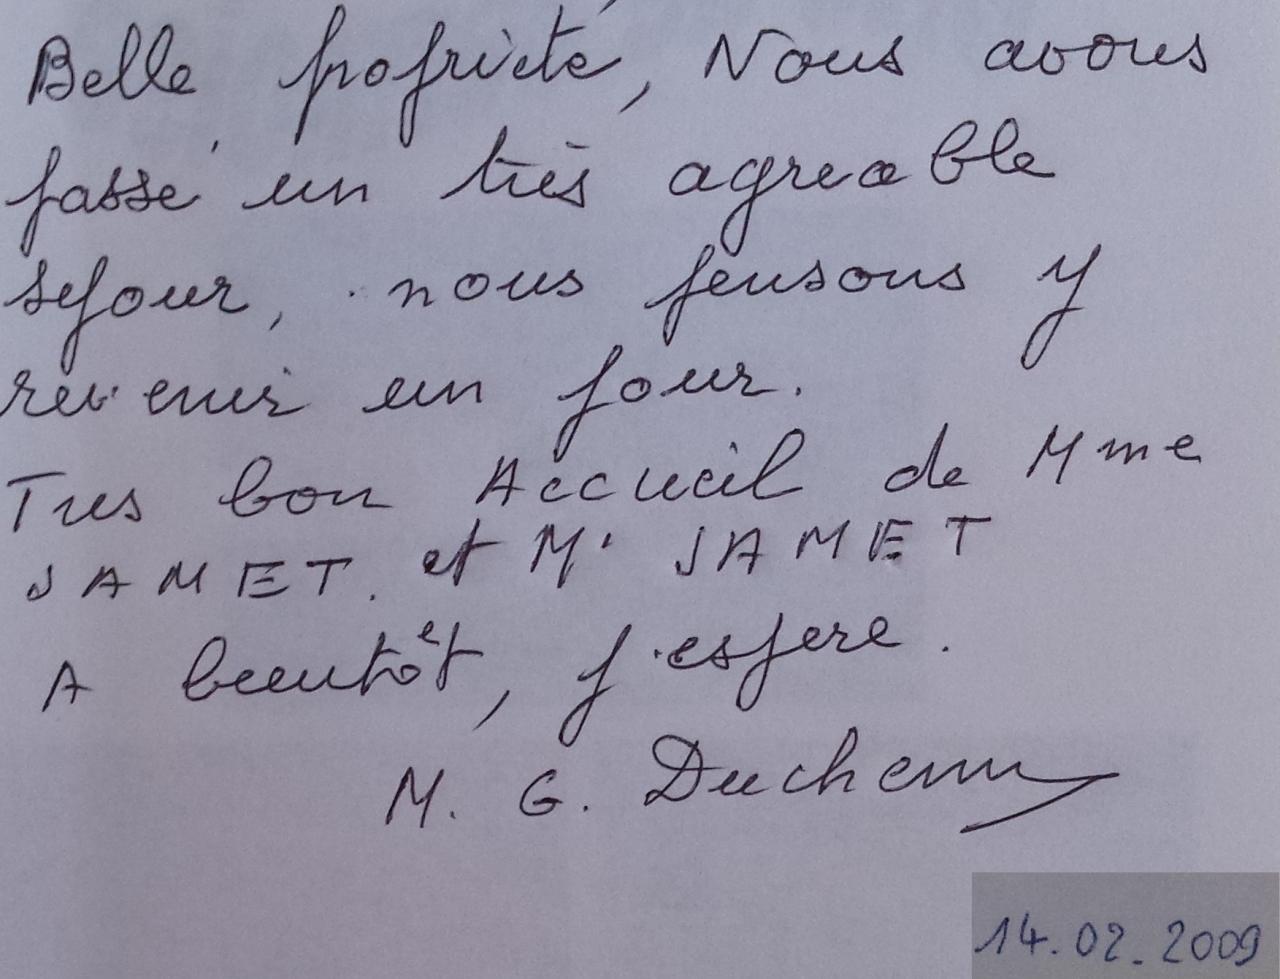 Belle propriété, Nous avons
passé un très agreable
sejour, nous pensons y
revenir un jour.
Tres bon Accueil de Mme
JAMET. et Mr JAMET
A bientôt, j'espere.
M. G.
14.02.2009